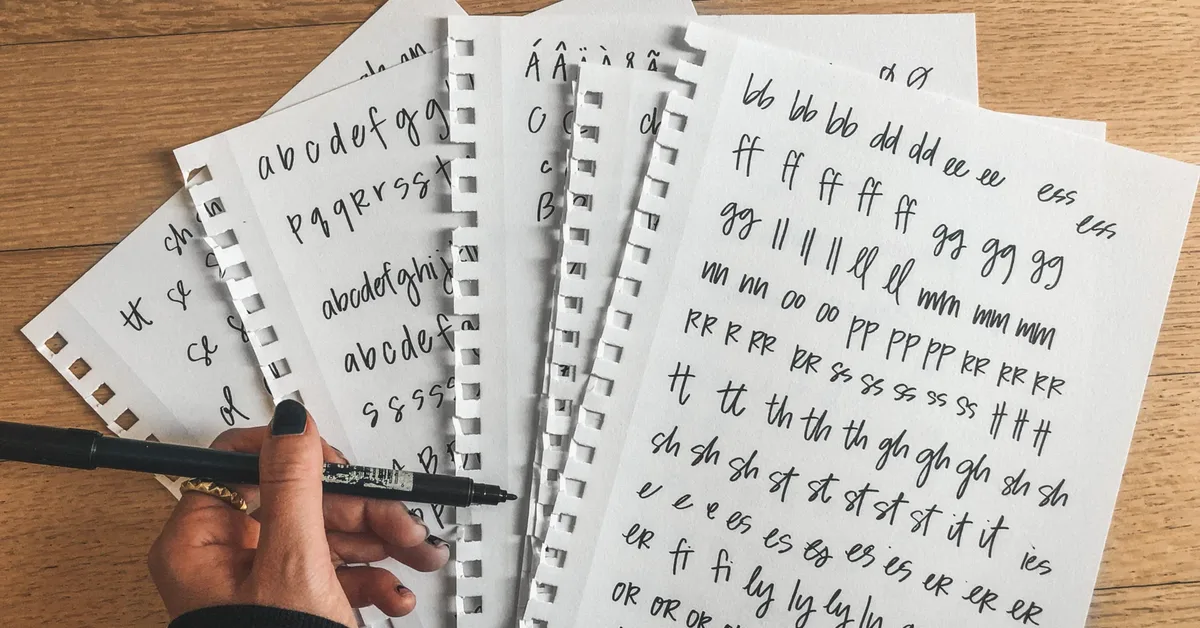 sh
tt se
se
ol
a b c d e f g g
p q q R r s s t
abcdefghij
a b c d e f
s s s s s
B
Á Â Ä À Ã
c
B
bb bb bb dd dd ee ee ess
ess
ff ff ff ff ff gg gg gg
gg ll ll ll ll ll mm mm mm
nn nn oo oo pp pp pp RR RR RR
RR R RR RR ss ss ss ss ss tt tt tt
tt tt th th th gh gh gh sh sh
sh sh sh st st st st st it it ies
e e e es es es es es er er er
er fi fi ly ly ly ly
or or or